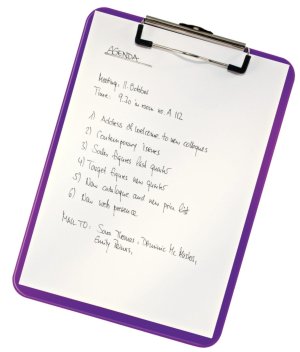 AGENDA
Meeting: 11. October
Time: 9.30 in room no. A 112
1) Address of welcome to new colleagues
2) Contemporary issues
3) Sales figures last quarter
4) Target figures new quarter
5) New catalogue and new price list
6) New web presence
MAIL TO: Sara Thomas, Dominic Mc
Emily